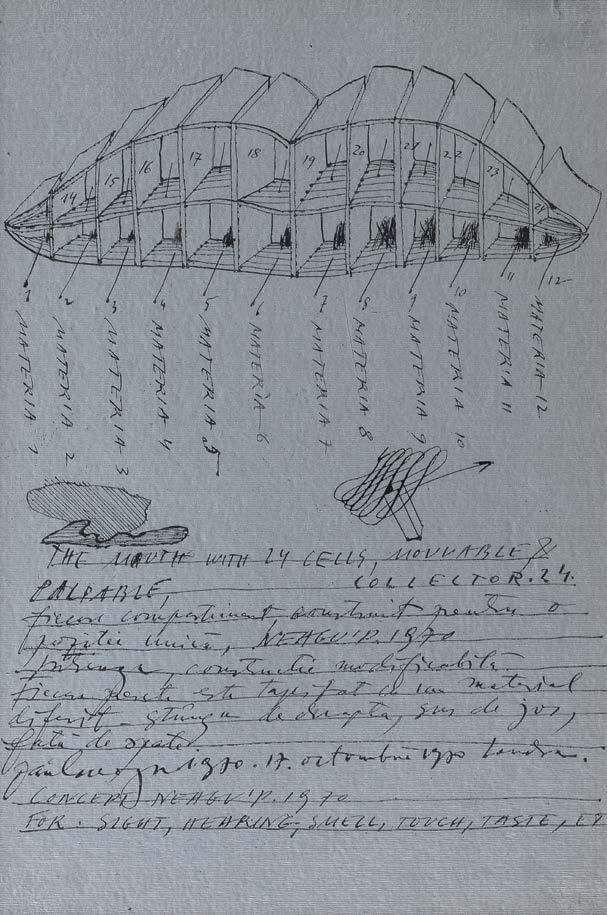 14 15 16 17 18 19 20 21 22 23 24
1 2 3 4 5 6 7 8 9 10 11 12
MATERIA 1
MATERIA 2
MATERIA 3
MATERIA 4
MATERIA 5
MATERIA 6
MATERIA 7
MATERIA 8
MATERIA 9
MATERIA 10
MATERIA 11
MATERIA 12
THE MOUTH WITH 24 CELLS, MOUVABLE &
PALPABLE, COLLECTOR. 24.
fiecare compartiment, construit pentru o
poziție unică, NEAGU'P. 1970
constructie modificabilă.
fiecare perete este tapisat cu un material
diferit - stânga de dreapta, sus de jos,
față de spate.
paul neagu 1970. 17. octombrie 1970 Londra.
CONCEPT NEAGU'P. 1970
FOR. SIGHT, HEARING, SMELL, TOUCH, TASTE, ET